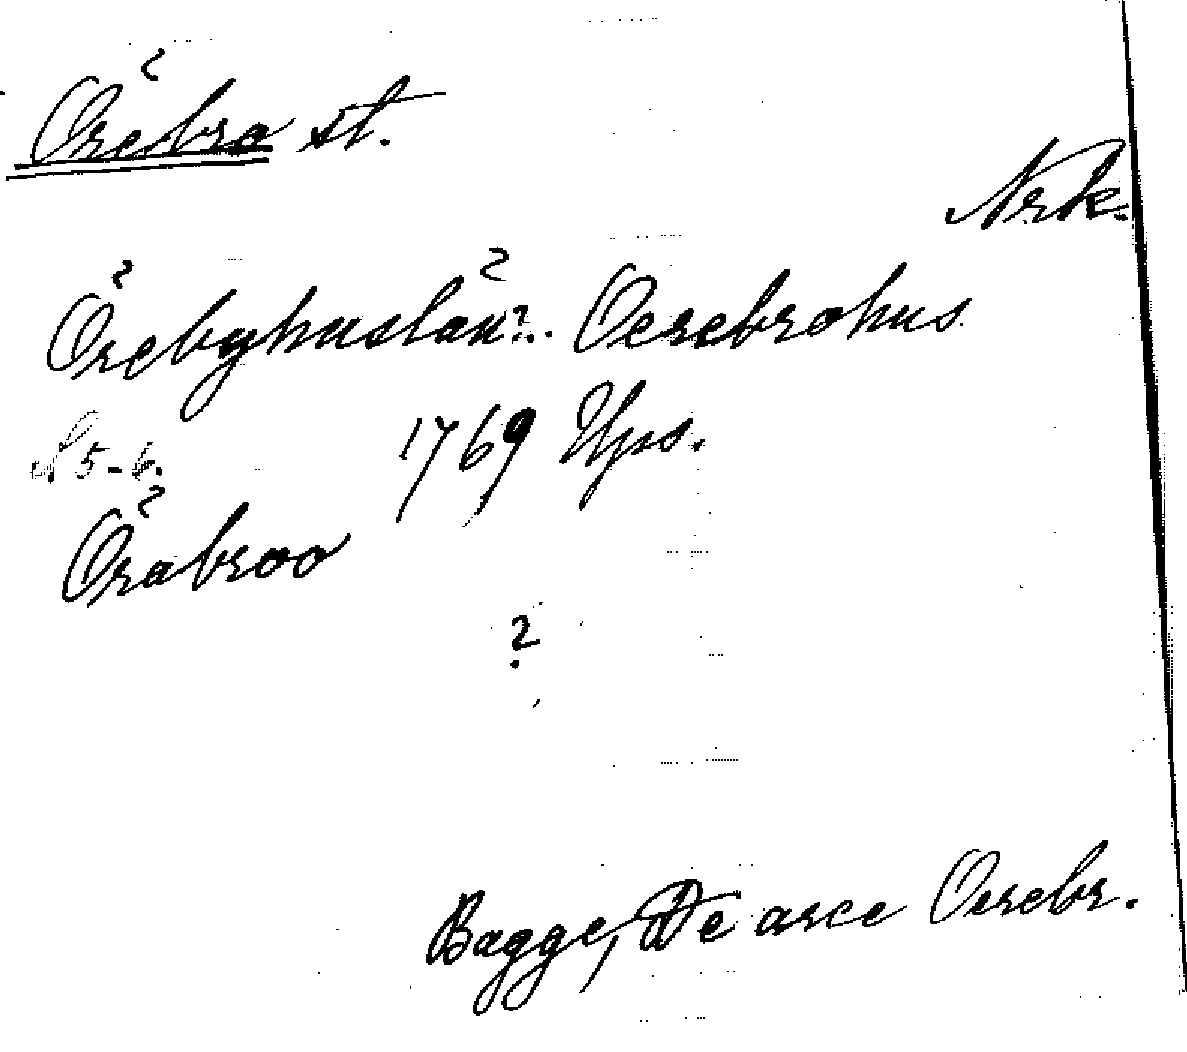 Örebro st.
Nrk.
Örebyhuslän?. Oerebrohus
S 5-6. 1769 Ups.
Öråbroo
?
Bagge, De arce Oerebr.